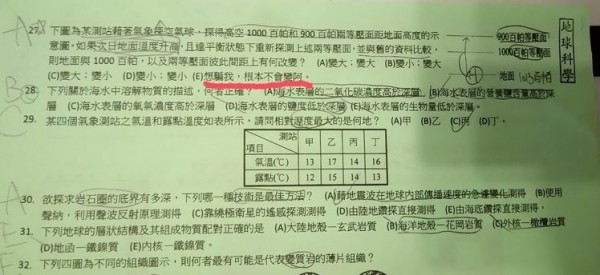 27. 下圖為某測站藉著氣象探空氣球，探得高空1000百帕和900百帕兩等壓面距地面高度的示
意圖。如果次日地面溫度升高，且達平衡狀態下重新探測上述兩等壓面，並與舊的資料比較，
則地面與1000百帕，以及兩等壓面彼此間距上有何改變？ (A)變大；變大 (B)變小；變大
(C)變大；變小 (D)變小；變小 (E)想騙我，根本不會變阿。
900百帕等壓面
1000百帕等壓面
地面
地球科學
28. 下列關於海水中溶解物質的描述，何者正確？ (A)海水表層的二氧化碳濃度高於深層 (B)海水表層的營養鹽含量高於深
層 (C)海水表層的氧氣濃度高於深層 (D)海水表層的鹽度低於深層 (E)海水表層的生物量低於深層。
29. 某四個氣象測站之氣溫和露點溫度如表所示，請問相對溼度最大的是何地？ (A)甲 (B)乙 (C)丙 (D)丁。
測站
項目
甲 乙 丙 丁
氣溫(℃) 13 17 14 16
露點(℃) 12 15 14 13
30. 欲探求岩石圈的底界有多深，下列哪一種技術是最佳方法？ (A)藉地震波在地球內部傳播速度的急遽變化測得 (B)使用
聲納，利用聲波反射原理測得 (C)靠繞極衛星的遙感探測測得 (D)由陸地鑽探直接測得 (E)由海底鑽探直接測得。
31. 下列地球的層狀結構及其組成物質配對正確的是 (A)大陸地殼－玄武岩質 (B)海洋地殼－花岡岩質 (C)外核－橄欖岩質
(D)地函－鐵鎳質 (E)內核－鐵鎳質。
32. 下列四圖為不同的組織圖示，則何者最有可能是代表變質岩的薄片組織？